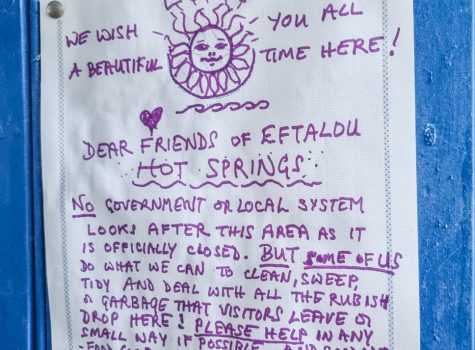 WE WISH YOU ALL
A BEAUTIFUL TIME HERE!
DEAR FRIENDS OF EFTALOU
HOT SPRINGS.
NO GOVERNMENT OR LOCAL SYSTEM
LOOKS AFTER THIS AREA AS IT
IS OFFICIALLY CLOSED. BUT SOME OF US
DO WHAT WE CAN TO CLEAN, SWEEP,
TIDY AND DEAL WITH ALL THE RUBISH
& GARBAGE THAT VISITORS LEAVE OR
DROP HERE! PLEASE HELP IN ANY
SMALL WAY IF POSSIBLE